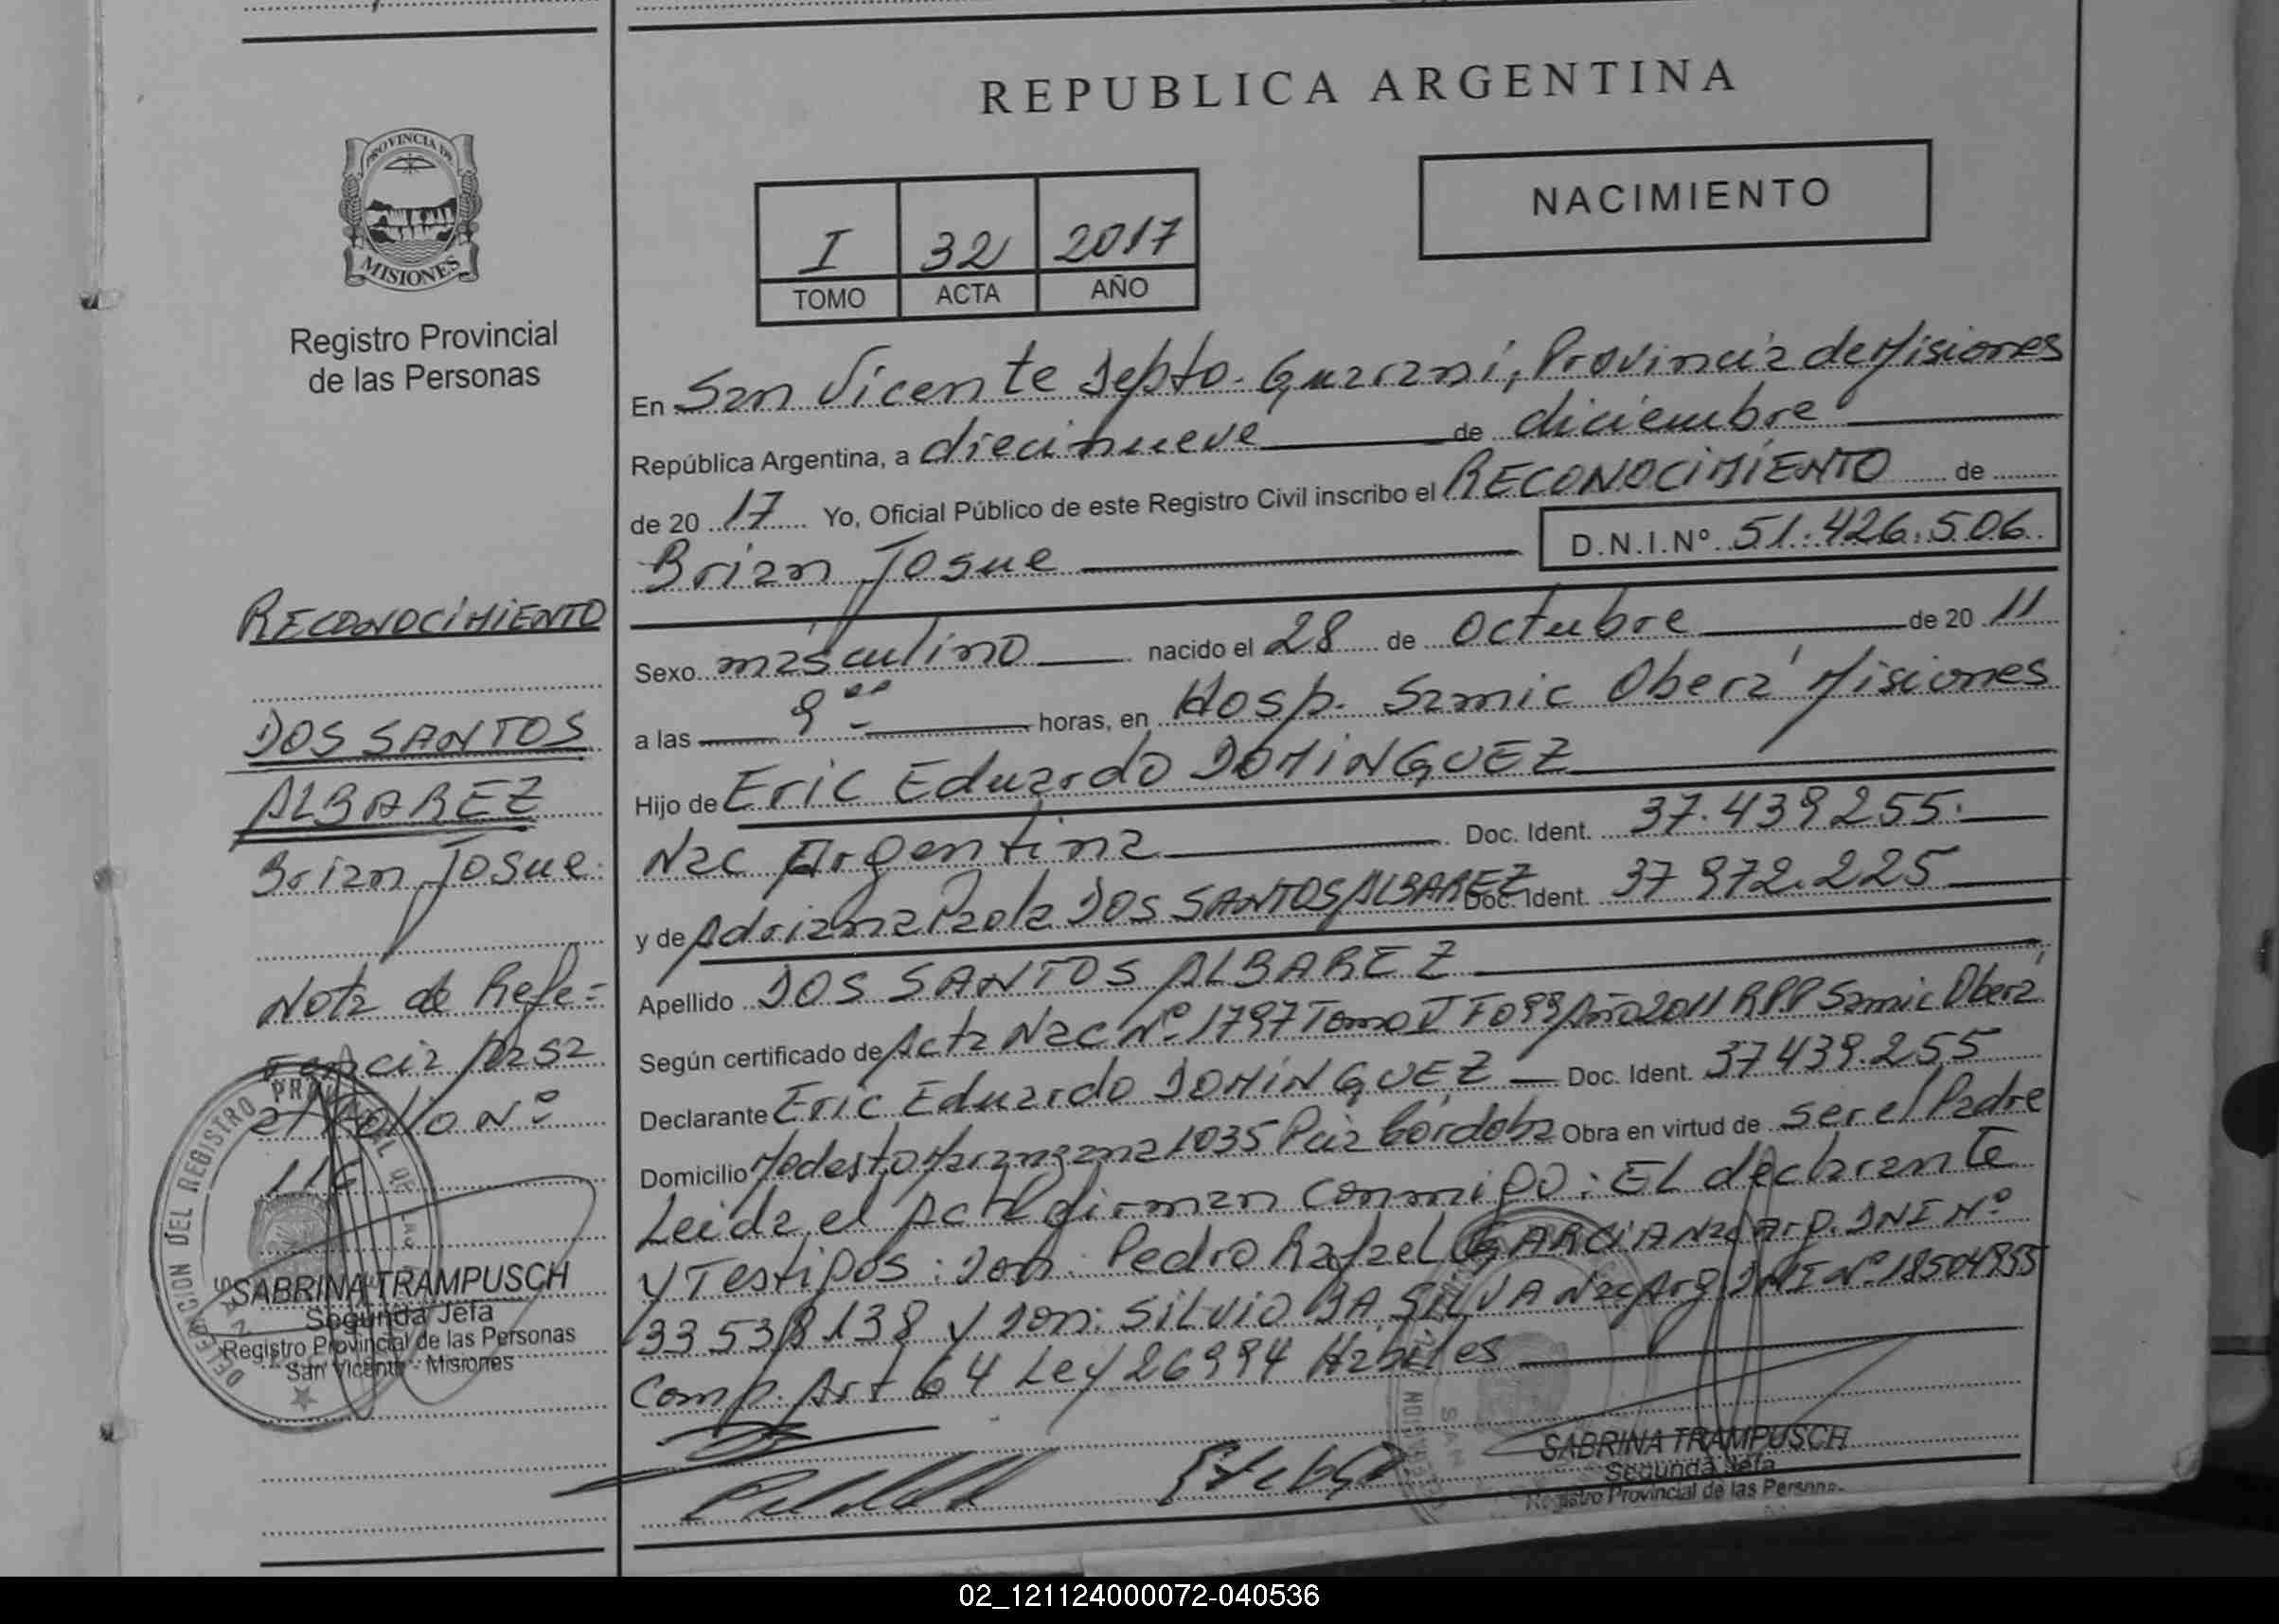 REPUBLICA ARGENTINA
PROVINCIA DE
MISIONES
Registro Provincial
de las Personas
NACIMIENTO
I 32 2017
TOMO ACTA AÑO
En San Vicente Depto. Guaraní, Provincia de Misiones
República Argentina, a diecinueve de diciembre
de 20 17 Yo, Oficial Público de este Registro Civil inscribo el RECONOCIMIENTO de
Brian Josue D.N.I.Nº 51.426.506
Sexo masculino nacido el 28 de Octubre de 20 11
a las 9 horas, en Hosp. Samic Oberá Misiones
Hijo de Eric Eduardo DOMINGUEZ
Nac Argentina Doc. Ident. 37.439255.
y de Adriana Paola DOS SANTOS ALBAREZ Doc. Ident. 37 972.225
Apellido DOS SANTOS ALBAREZ
Según certificado de Acta Nac Nº 1797 Tomo Fº 99 Año 2011 RPP Samic Oberá
Declarante Eric Eduardo DOMINGUEZ Doc. Ident. 37439.255
Domicilio 1035 Córdoba Obra en virtud de ser el Padre
Leida el Acta firman conmigo: EL declarante
y Testigos: Don. Pedro Rafael GARCIA Nac Arg. DNI Nº
33538138 y Don: SILVIO DA SILVA Nac Arg DNI Nº
Comp. Art 64 Ley 26994 Habiles
SABRINA TRAMPUSCH
Segunda Jefa
Registro Provincial de las Personas
RECONOCIMIENTO
DOS SANTOS
ALBAREZ
Brian Josue
Nota de Refe=
rencia pasa
al folio Nº
116
DELEGACION DEL REGISTRO PROVINCIAL DE
SABRINA TRAMPUSCH
Segunda Jefa
Registro Provincial de las Personas
San Vicente - Misiones
02_121124000072-040536